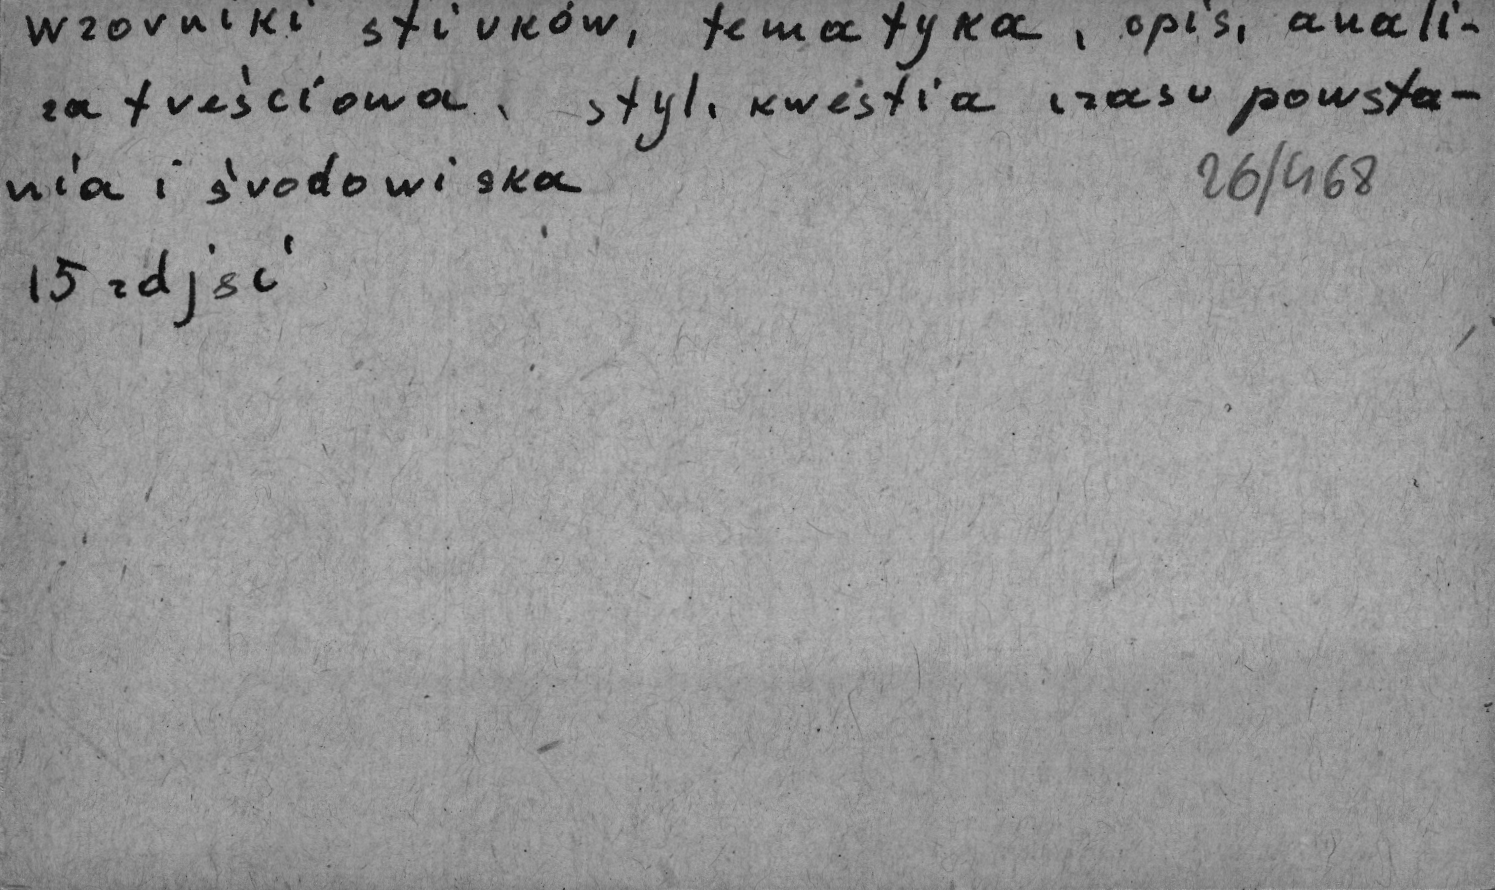 wzorniki stiuków, tematyka, opis, anali-
za treściowa, styl, kwestia czasu powsta-
nia i środowiska
26/468
15 zdjęć